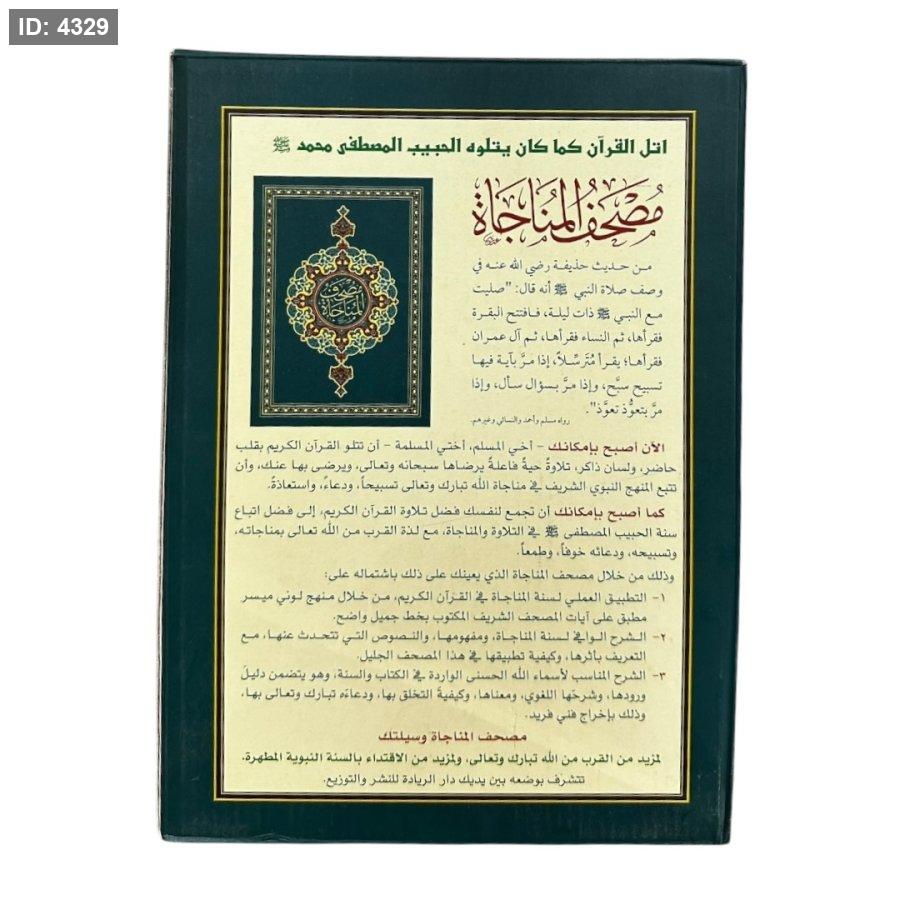 ID: 4329
اتل القرآن كما كان يتلوه الحبيب المصطفى محمد ﷺ
مُصْحَفُ المُنَاجَاة
مصحف
المناجاة
من حديث حذيفة رضي الله عنه في
وصف صلاة النبي ﷺ أنه قال: "صليت
مع النبي ﷺ ذات ليلة، فافتتح البقرة
فقرأها، ثم النساء فقرأها، ثم آل عمران
فقرأها؛ يقرأ مُتَرَسِّلاً، إذا مرَّ بآية فيها
تسبيح سبَّح، وإذا مرَّ بسؤال سأل، وإذا
مرَّ بتعوُّذ تعوَّذ".
رواه مسلم وأحمد والنسائي وغيرهم.
الآن أصبح بإمكانك – أخي المسلم، أختي المسلمة – أن تتلو القرآن الكريم بقلب
حاضر، ولسان ذاكر، تلاوةً حيةً فاعلةً يرضاها سبحانه وتعالى، ويرضى بها عنك، وأن
تتبع المنهج النبوي الشريف في مناجاة الله تبارك وتعالى تسبيحاً، ودعاءً، واستعاذةً.
كما أصبح بإمكانك أن تجمع لنفسك فضل تلاوة القرآن الكريم، إلى فضل اتباع
سنة الحبيب المصطفى ﷺ في التلاوة والمناجاة، مع لذة القرب من الله تعالى بمناجاته،
وتسبيحه، ودعائه خوفاً، وطمعاً.
وذلك من خلال مصحف المناجاة الذي يعينك على ذلك باشتماله على:
١- التطبيق العملي لسنة المناجاة في القرآن الكريم، من خلال منهج لوني ميسر
مطبق على آيات المصحف الشريف المكتوب بخط جميل واضح.
٢- الشرح الوافي لسنة المناجاة، ومفهومها، والنصوص التي تتحدث عنها، مع
التعريف بأثرها، وكيفية تطبيقها في هذا المصحف الجليل.
٣- الشرح المناسب لأسماء الله الحسنى الواردة في الكتاب والسنة، وهو يتضمن دليلَ
ورودها، وشرحَها اللغوي، ومعناها، وكيفيةَ التخلق بها، ودعاءَه تبارك وتعالى بها،
وذلك بإخراج فني فريد.
مصحف المناجاة وسيلتك
لمزيد من القرب من الله تبارك وتعالى، ولمزيد من الاقتداء بالسنة النبوية المطهرة.
تتشرف بوضعه بين يديك دار الريادة للنشر والتوزيع.